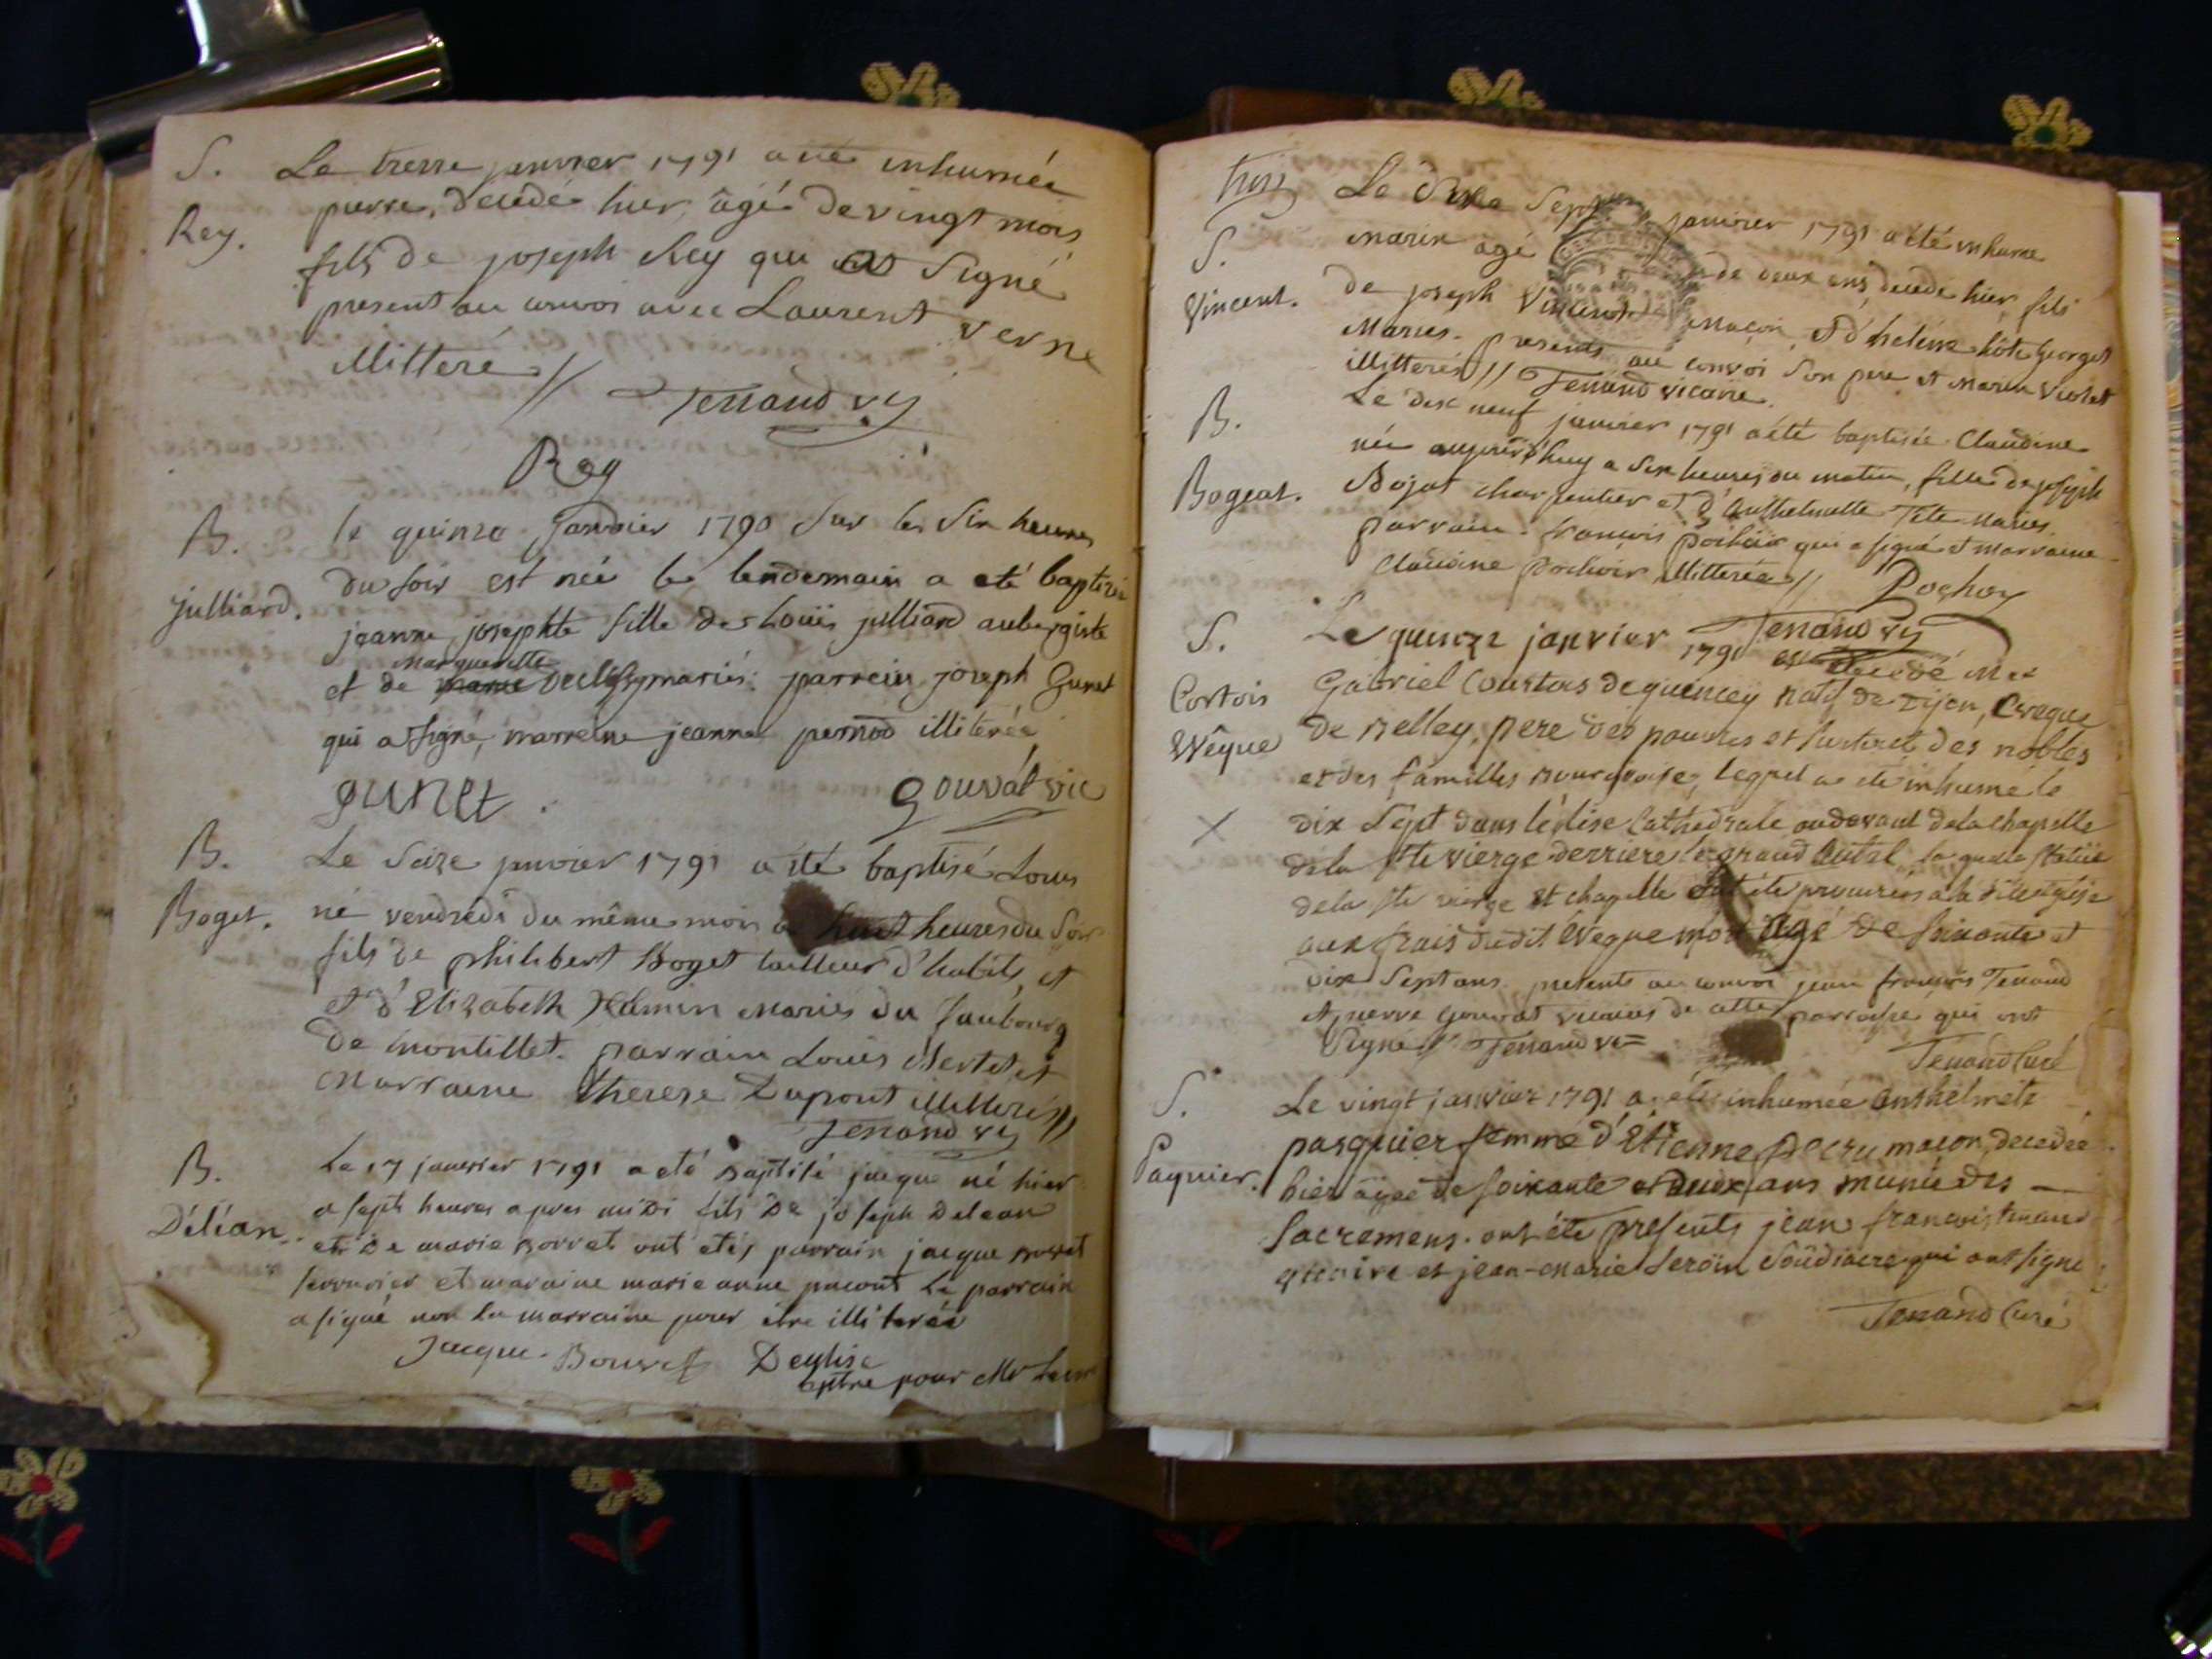 S. Le treize janvier 1791 a été inhumée
Rey. pierre, décédé hier, âgé de vingt mois
fils de joseph Rey qui a Signé
present au convoi avec Laurent verne
illitteré // Tenand vic
Rey
B. le quinze Janvier 1790 Sur les Six heures
julliard. du soir est née le lendemain a eté baptisée
jeanne josephte fille de Louïs julliard aubergiste
et de marguerite mariés: parrein joseph Gunet
qui a signé, marreine jeanne pernod illiterée
gunet. Gouvat vic
B. Le Seize janvier 1791 a été baptisé Louis
Boget. né vendredi du même mois a huit heures du Soir
fils de philibert Boget tailleur d'habits, et
et d'Elizabeth Mariés du faubourg
de montillet. parrain Louis Mertet, et
Marraine therese Dupont illitterés //
Tenand vic
B. Le 17 janvier 1791 a eté baptisé jacque né hier
Déléan. a sept heures apres midi fils de joseph Delean
et de marie borret ont etés parrain jacque
serrurier et maraine marie anne pacout le parrain
a signé non la marraine pour être illiterée
Jacque Bouvet Deglise
pour Mr
trois Le Dixe Sept janvier 1791 a été inhumé
S. marin agé de deux ans, décédé hier, fils
Vincent. de joseph Vincent Maçon, et d'helène hôte Georget
Mariés. presents au convoi son pere et Marin Violet
illitterés // Tenand vicaire.
B. Le dix neuf janvier 1791 a été baptisée Claudine
née aujourd'huy a Six heures du matin, fille de joseph
Bogeat. Bojat charpentier et d'Anthelmette Tete Mariés
parrain. françois pochoir qui a signé et marraine
Claudine Pochoir illitterée // Pochoy
Tenand vic
S. Le quinze janvier 1791 est décédé M.re
Cortois Gabriel Courtois de quincey natif de Dijon, Eveque
Evêque de Belley, pere des pauvres et des nobles
et des familles Bourgeoise, lequel a été inhumé le
X dix Sept dans l'église Cathedrale au devant de la chapelle
de la Ste vierge derriere le grand Autel, la quelle Statüe
de la Ste vierge et chapelle ont été procurées a la dite église
aux frais dudit Eveque mort âgé de soixante et
dix Sept ans. presents au convoi jean françois Tenand
et pierre Gouvat vicaires de cette parroche qui ont
Signé // Tenand vic
Tenand Curé
S. Le vingt janvier 1791 a été inhumée anthelmete
Paquier. pasquier femme d'Etienne Decru maçon, decedée
hier âgée de soixante et deux ans munie des
Sacremens. ont été presents jean françois tenand
et jean-marie Seroin Soûdiacre qui ont signé
Tenand Curé